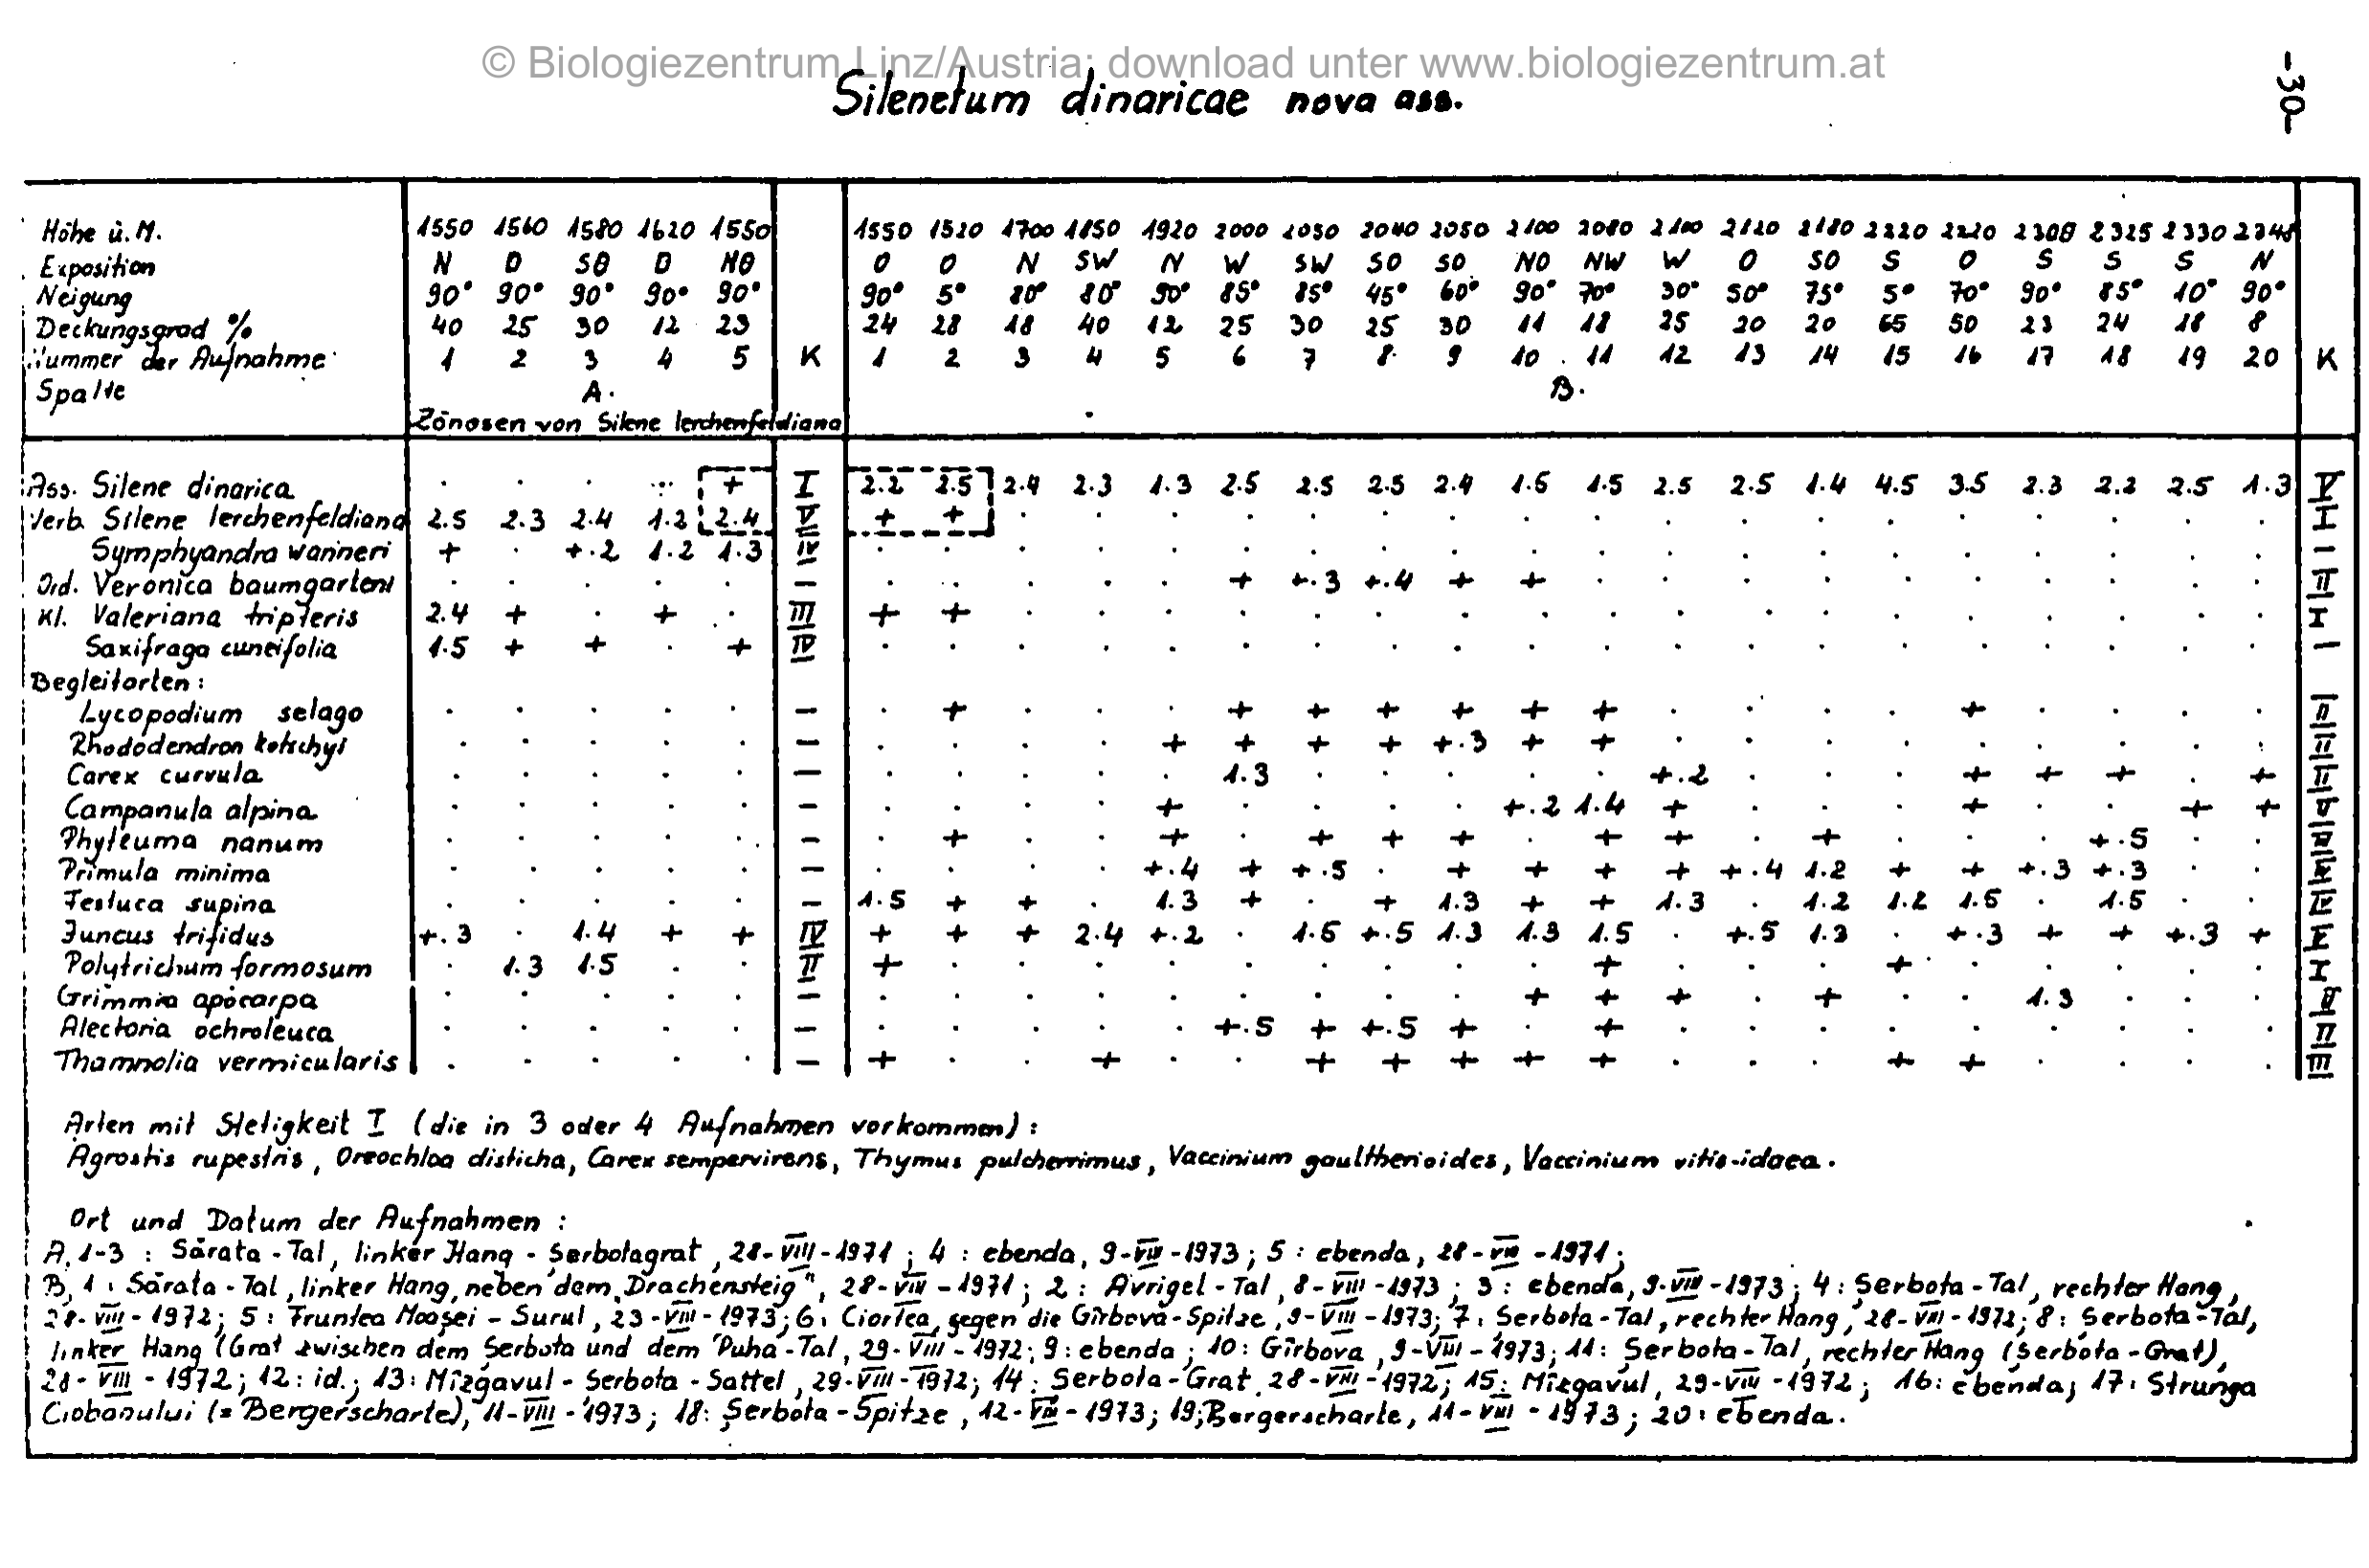 © Biologiezentrum Linz/Austria; download unter www.biologiezentrum.at
-30-
Silenetum dinaricae nova ass.
Höhe ü.M. 1550 1560 1580 1620 1550 1550 1520 1700 1850 1920 2000 2030 2040 2050 2100 2080 2100 2120 2180 2220 2220 2300 2325 2330 2348
Exposition N O SO O NO O O N SW N W SW SO SO NO NW W O SO S O S S S N
Neigung 90° 90° 90° 90° 90° 90° 5° 80° 80° 90° 85° 85° 45° 60° 90° 70° 30° 50° 75° 5° 70° 90° 85° 10° 90°
Deckungsgrad % 40 25 30 12 23 24 28 18 40 12 25 30 25 30 11 18 25 20 20 65 50 23 24 18 8
Nummer der Aufnahme 1 2 3 4 5 K 1 2 3 4 5 6 7 8 9 10 11 12 13 14 15 16 17 18 19 20 K
Spalte A. B.
Zönosen von Silene lerchenfeldiana
Ass. Silene dinarica . . . . + I 2.2 2.5 2.4 2.3 1.3 2.5 2.5 2.5 2.4 1.5 1.5 2.5 2.5 1.4 4.5 3.5 2.3 2.2 2.5 1.3 V
Verb. Silene lerchenfeldiana 2.5 2.3 2.4 1.2 2.4 V + + . . . . . . . . . . . . . . . . . . I
Symphyandra wanneri + . +.2 1.2 1.3 IV . . . . . . . . . . . . . . . . . . . . –
Ord. Veronica baumgarteni . . . . . – . . . . . + +.3 +.4 + + . . . . . . . . . . II
Kl. Valeriana tripteris 2.4 + . + . III + + . . . . . . . . . . . . . . . . . . I
Saxifraga cuneifolia 1.5 + + . + IV . . . . . . . . . . . . . . . . . . . . –
Begleitarten:
Lycopodium selago . . . . . – . + . . . + + + + + + . . . . + . . . . II
Rhododendron kotschyi . . . . . – . . . . + + + + +.3 + + . . . . . . . . . II
Carex curvula . . . . . – . . . . . 1.3 . . . . . +.2 . . . + + + . + II
Campanula alpina . . . . . – . . . . + . . . . +.2 1.4 + . . . + . . + +
Phyteuma nanum . . . . . – . + . . + . + + + . + + . + . . . +.5 . . III
Primula minima . . . . . – . . . . +.4 + +.5 . + + + + +.4 1.2 + + +.3 +.3 . . IV
Festuca supina . . . . . – 1.5 + + . 1.3 + . + 1.3 + + 1.3 . 1.2 1.2 1.5 . 1.5 . . IV
Juncus trifidus +.3 . 1.4 + + IV + + + 2.4 +.2 . 1.5 +.5 1.3 1.3 1.5 . +.5 1.3 . +.3 + + +.3 + V
Polytrichum formosum . 1.3 1.5 . . II + . . . . . . . . . + . . . + . . . . . I
Grimmia apocarpa . . . . . – . . . . . . . . . + + + . + . . 1.3 . . . II
Alectoria ochroleuca . . . . . – . . . . . +.5 + +.5 + . + . . . . . . . . . II
Thamnolia vermicularis . . . . . – + . . + . . + + + + + . . . + + . . . . III
Arten mit Stetigkeit I (die in 3 oder 4 Aufnahmen vorkommen):
Agrostis rupestris, Oreochloa disticha, Carex sempervirens, Thymus pulcherrimus, Vaccinium gaultherioides, Vaccinium vitis-idaea.
Ort und Datum der Aufnahmen:
A, 1-3 : Sărata-Tal, linker Hang - Șerbotagrat, 28-VIII-1971; 4 : ebenda, 9-VIII-1973; 5 : ebenda, 28-VIII-1971;
B, 1 : Sărata-Tal, linker Hang, neben dem „Drachensteig", 28-VIII-1971; 2 : Avrigel-Tal, 8-VIII-1973; 3 : ebenda, 9-VIII-1973; 4 : Șerbota-Tal, rechter Hang,
28-VIII-1972; 5 : Fruntea Moașei - Surul, 23-VIII-1973; 6 : Ciortea, gegen die Gîrbova-Spitze, 9-VIII-1973; 7 : Șerbota-Tal, rechter Hang, 28-VIII-1972; 8 : Șerbota-Tal,
linker Hang (Grat zwischen dem Șerbota und dem Puha-Tal, 29-VIII-1972; 9 : ebenda; 10 : Gîrbova, 9-VIII-1973; 11 : Șerbota-Tal, rechter Hang (Șerbota-Grat),
28-VIII-1972; 12 : id.; 13 : Mîzgavul - Șerbota-Sattel, 29-VIII-1972; 14 : Șerbota-Grat, 28-VIII-1972; 15 : Mîzgavul, 29-VIII-1972; 16 : ebenda; 17 : Strunga
Ciobanului (= Bergerscharte), 11-VIII-1973; 18 : Șerbota-Spitze, 12-VIII-1973; 19; Bergerscharte, 11-VIII-1973; 20 : ebenda.